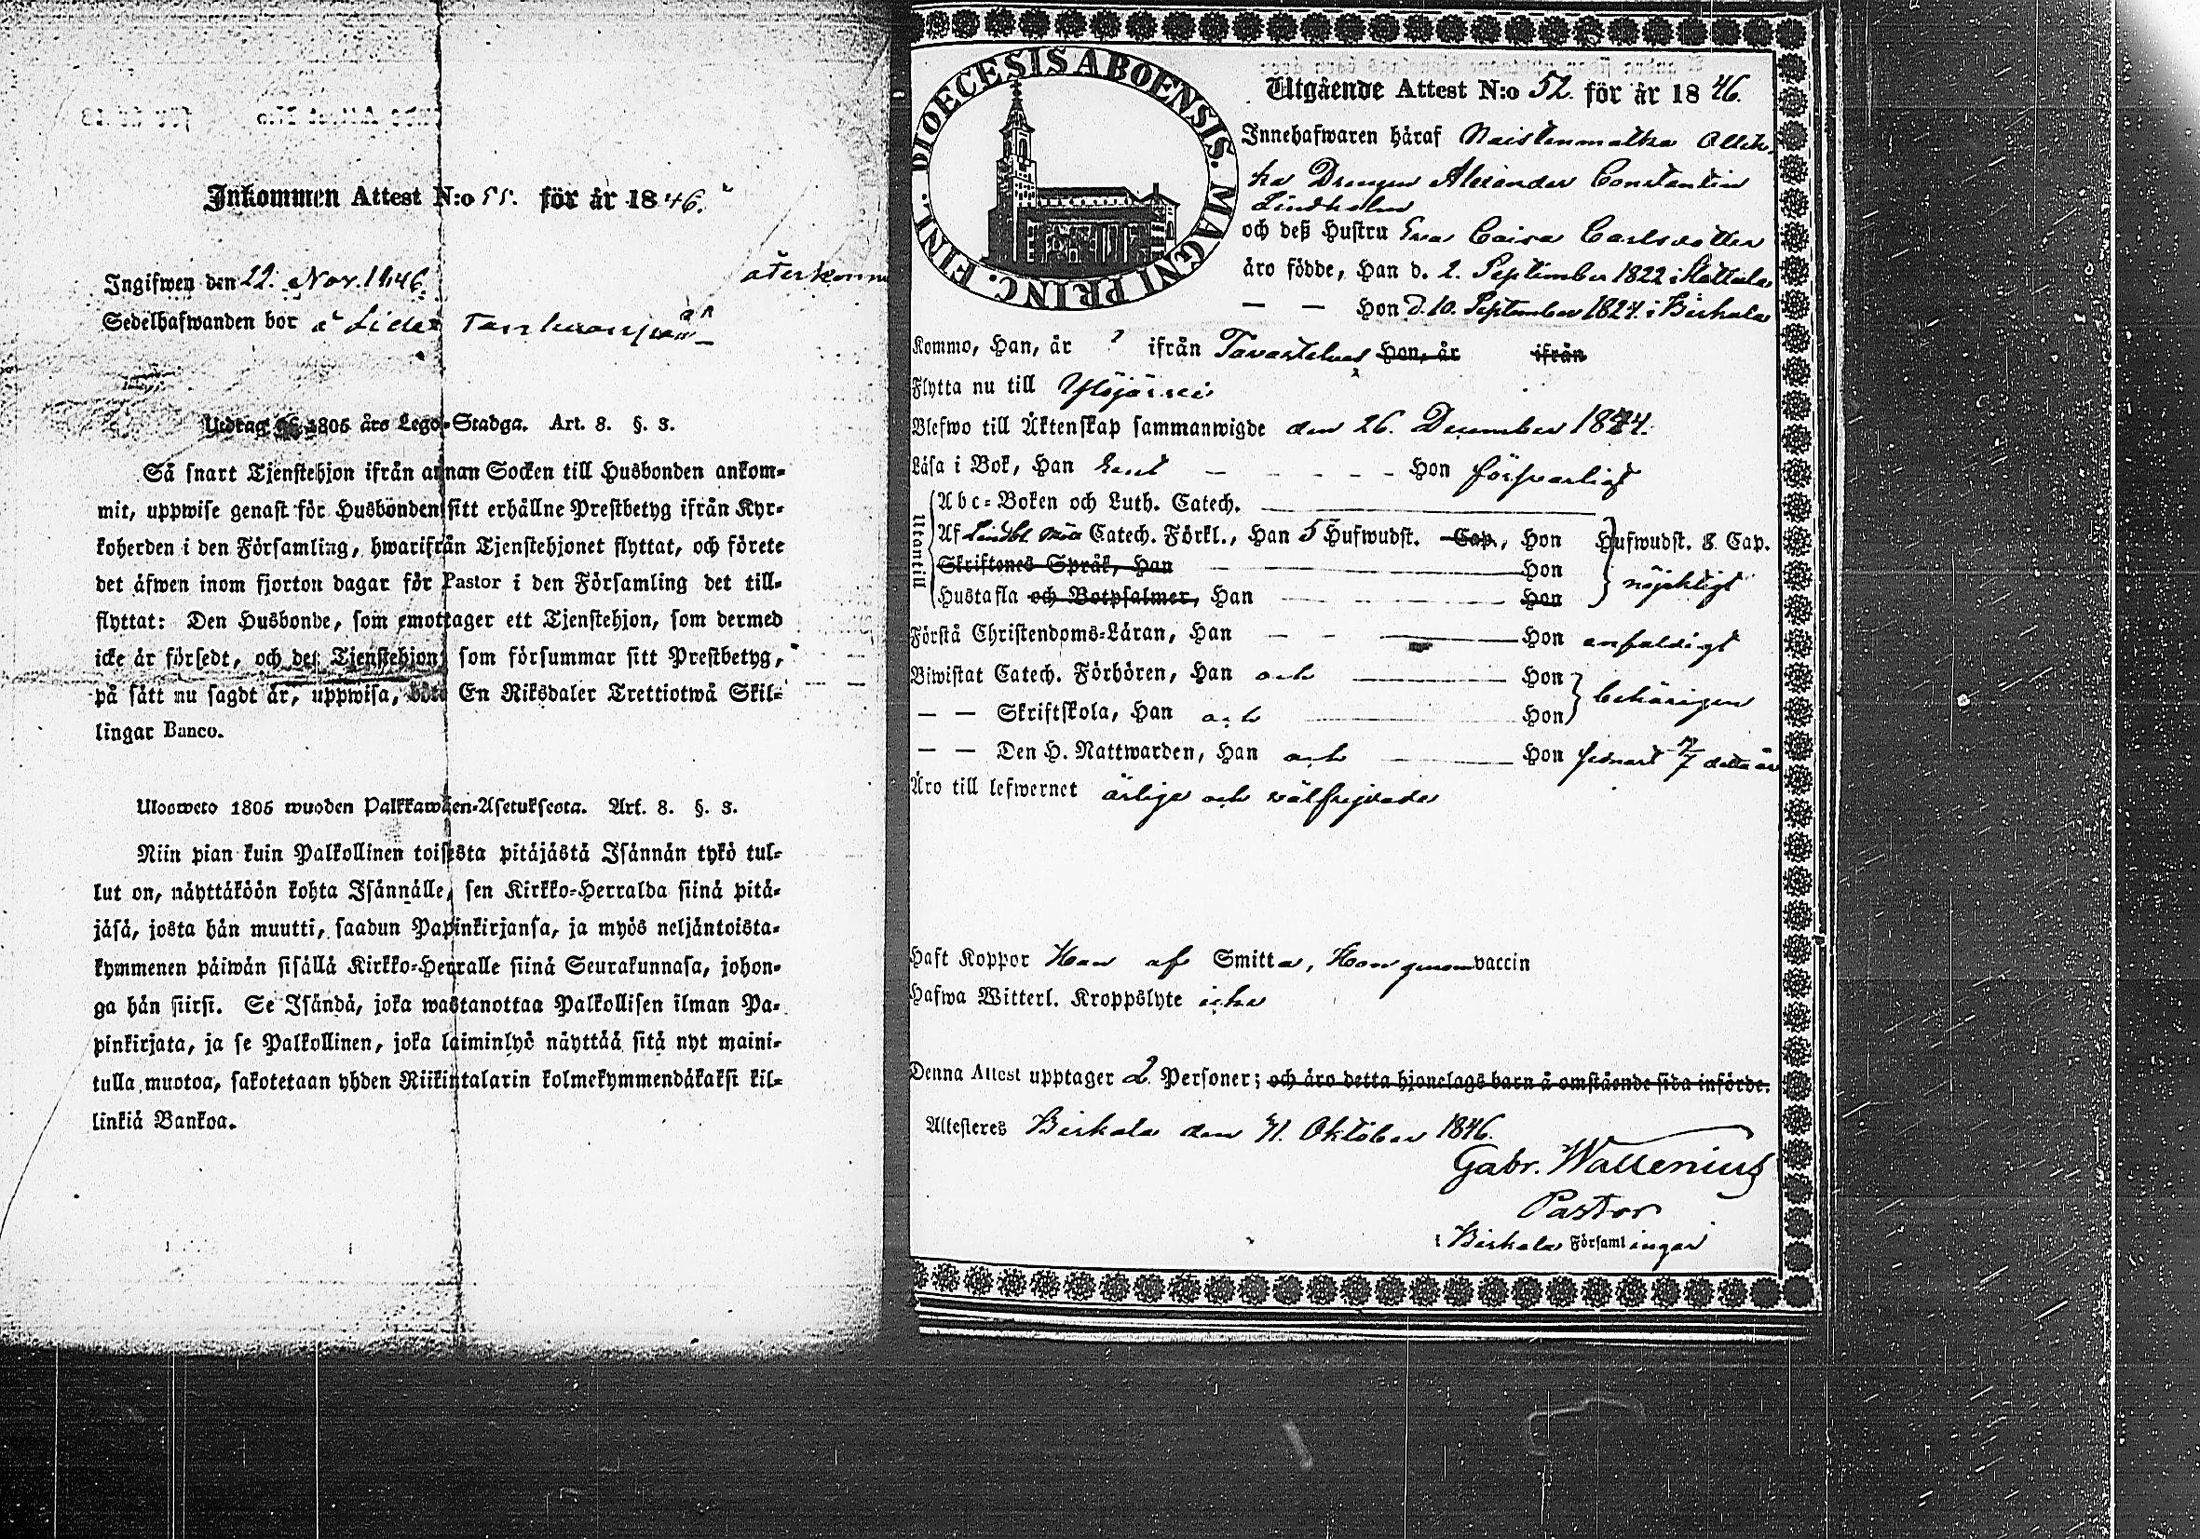 Inkommen Attest N:o 55. för år 1846.
Ingifwen den 22. Nov. 1846.
återkomm
Sedelhafwanden bor å
Utdrag af 1805 års Lego-Stadga. Art. 8. §. 3.
Så snart Tjenstehjon ifrån annan Socken till Husbonden ankom-
mit, uppwise genast för Husbonden sitt erhållne Prestbetyg ifrån Kyr-
koherden i den Församling, hwarifrån Tjenstehjonet flyttat, och förete
det äfwen inom fjorton dagar för Pastor i den Församling det till-
flyttat: Den Husbonde, som emottager ett Tjenstehjon, som dermed
icke är försedt, och det Tjenstehjon, som försummar sitt Prestbetyg,
på sätt nu sagdt är, uppwisa, böte En Riksdaler Trettiotwå Skil-
lingar Banco.
Ulosweto 1805 wuoden Palkkawäen-Asetuksesta. Art. 8. §. 3.
Niin pian kuin Palkollinen toisesta pitäjästä Isännän tykö tul-
lut on, näyttäköön kohta Isännälle, sen Kirkko-Herralda siinä pitä-
jäsä, josta hän muutti, saadun Papinkirjansa, ja myös neljäntoista-
kymmenen päiwän sisällä Kirkko-Herralle siinä Seurakunnasa, johon-
ga hän siirsi. Se Isändä, joka wastanottaa Palkollisen ilman Pa-
pinkirjata, ja se Palkollinen, joka laiminlyö näyttää sitä nyt maini-
tulla muotoa, sakotetaan yhden Riikintalarin kolmekymmendäkaksi kil-
linkiä Bankoa.
DIOECESIS ABOENSIS. MAGNI PRINC. FINL.
Utgående Attest N:o 52. för år 1846.
Innehafwaren häraf Naistenmatka Ollik-
ka Drengen Alexander Constantin
Lindholm
och deß Hustru Eva Caisa Carlsdotter
äro födde, Han d. 2. September 1822 i
Hon d. 10. September 1824. i Birkala
Kommo, Han, år ? ifrån Tavastehus Hon, år ifrån
Flytta nu till Ylöjärvi
Blefwo till Äktenskap sammanwigde den 26. December 1844.
Läsa i Bok, Han Hon försvarligt
Utantill
Abc-Boken och Luth. Catech.
Af Catech. Förkl., Han 5 Hufwudst. Cap., Hon Hufwudst. 8 Cap.
Skriftenes Språk, Han Hon
nöjaktigt
Hustafla och Botpsalmer, Han Hon
Förstå Christendoms-Läran, Han Hon enfaldigt
Biwistat Catech. Förhören, Han och Hon
behörigen
— — Skriftskola, Han och Hon
— — Den H. Nattwarden, Han och Hon senast detta år
Äro till lefwernet ärliga och välfrejdade
Haft Koppor Han af Smitta, Hon genom vaccin
Hafwa Witterl. Kroppslyte icke
Denna Attest upptager 2 Personer; och äro detta hjonelags barn å omstående sida införde.
Attesteres Birkala den 31. Oktober 1846.
Gabr. Wallenius
Pastor
i Birkala Församlingar